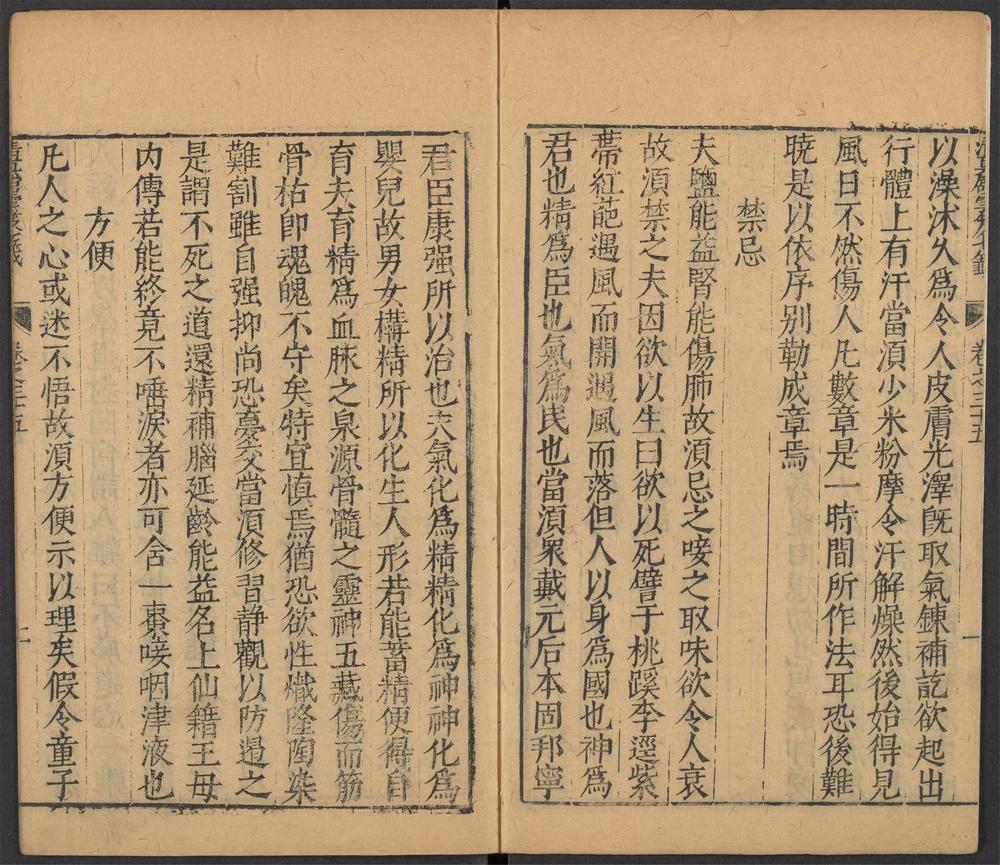 以澡沐久爲令人皮膚光澤旣取氣鍊補訖欲起出
行體上有汗當須少米粉摩令汗解燥然後始得見
風日不然傷人凡數章是一時間所作法耳恐後難
曉是以依序别勒成章焉
禁忌
夫鹽能益腎能傷肺故須忌之唼之取味欲令人衰
故須禁之夫因欲以生曰欲以死譬于桃蹊李逕紫
蔕紅葩遇風而開遇風而落但人以身爲國也神爲
君也精爲臣也氣爲民也當須衆戴元后本固邦寧
君臣康强所以治也夫氣化爲精精化爲神神化爲
嬰兒故男女構精所以化生人形若能蓄精便得自
育夫育精爲血脉之泉源骨髓之靈神五藏傷而筋
骨枯卽魂魄不守矣特宜慎焉猶恐欲性熾隆陶染
難割雖自强抑尚恐夢交當須修習静觀以防邉之
是謂不死之道還精補腦延齡能益名上仙籍王母
内傳若能終竟不唾涙者亦可含一棗唼咽津液也
方便
凡人之心或迷不悟故須方便示以理矣假令童子
卷之三十五
一
卷之三十五
二